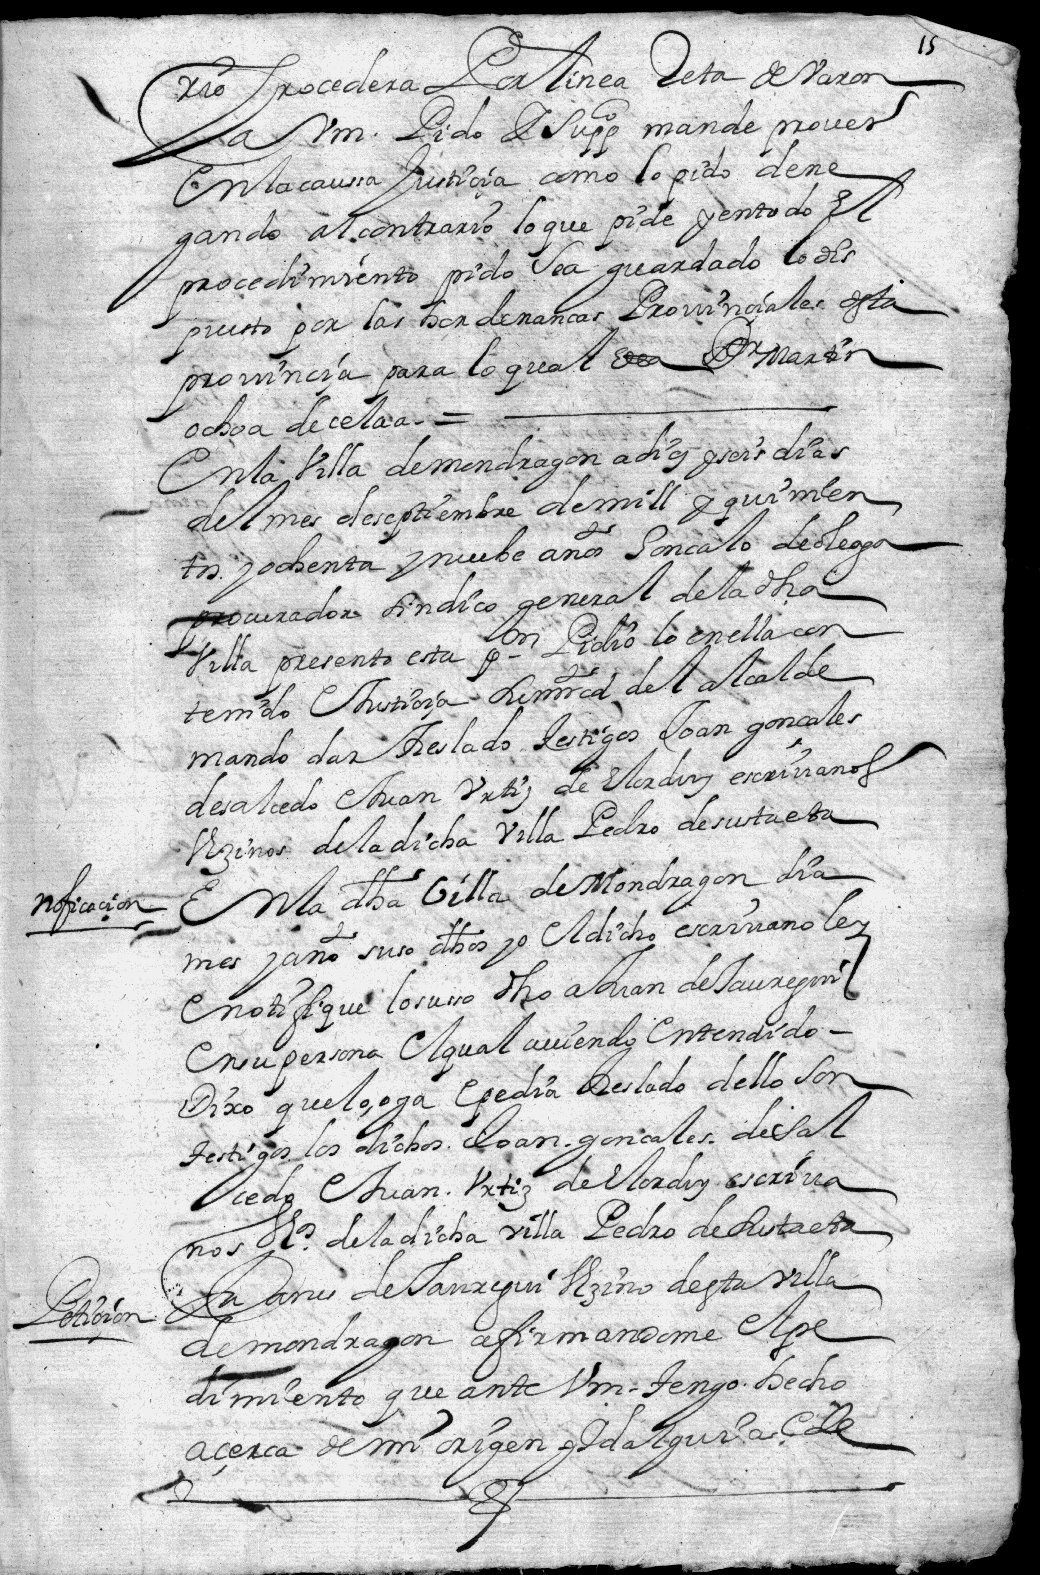 15
rrio procedera Por linea Reta de Varon
a Vm. Pido & Supp^co mande prouer
En la caussa Justiçia como lo pido dene
gando al contrario lo que pide y en todo El
procedimiento pido Sea guardado lo dis
puesto por las hordenancas Prouinçiales desta
prouinçia para lo qual Martin
ochoa de celaa =
En la Villa de mondragon a diez y seis dias
del mes de septiembre de mill y quinien
tos y ochenta y nuebe años Goncalo de olegga
procurador sindico general de la dha
Villa presento esta p^on Pidio lo en ella con
tenido E Justiçia su mrçd del alcalde
mando dar Treslado Testigos Joan goncales
de salcedo E Juan Vrtiz de Elorduy escriuanos
Vezinos de la dicha Villa Pedro de sustaeta
notificacion
En la dha Villa de Mondragon dia
mes y año suso dhos yo El dicho escriuano ley
E notifique lo susso dho a Juan de Jauregui
En su persona El qual auiendo Entendido
Dixo que lo oya E pedia Treslado dello Son
Testigos los dichos Joan goncales de Sal
cedo E Juan Vrtiz de Elorduy escriua
nos V^os de la dicha villa Pedro de Sustaeta
Petiçion
Juanes de Jauregui Vezino desta Villa
de mondragon afirmandome El pe
dimiento que ante Vm. Tengo hecho
açerca de mi origen y Idalguia E de